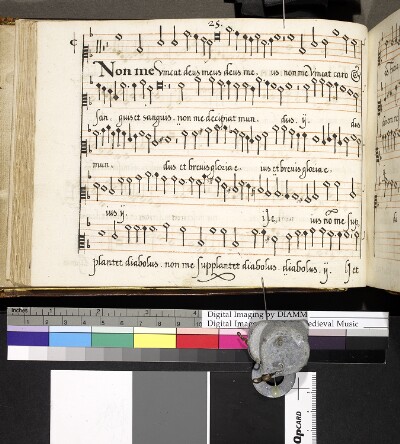 25.
Non me vincat deus meus deus me. us non me vincat caro
san guis et sanguis. non me decipiat mun. dus. ij. dus
mun. dus et brevis gloria e. ius et brevis gloria e.
ius. ij. ius no me sup
plantet diabolus. non me supplantet diabolus diabolus. ij. Et
inches 1 2 3 4
Digital Imaging by DIAMM
Digital Image Medieval Music
QPCARD